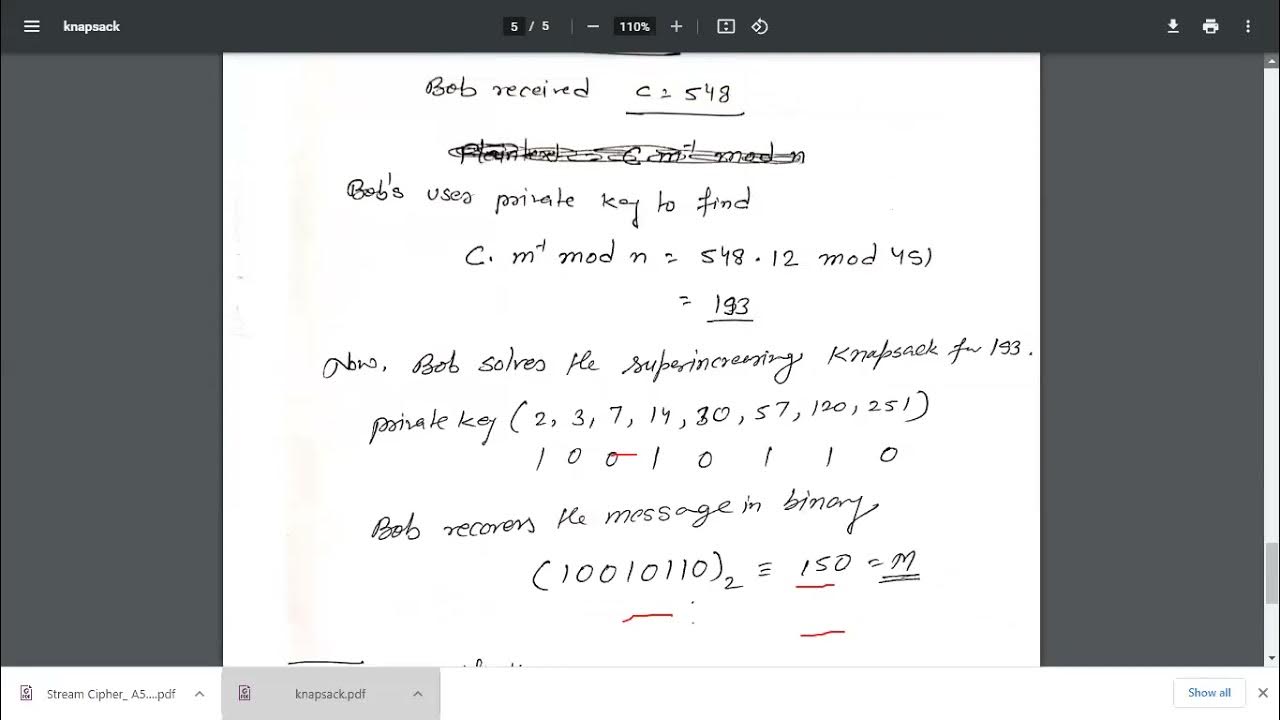 knapsack
5 / 5
110%
Bob received C = 548
Plaintext = C m⁻¹ mod n
Bob's uses private key to find
C. m⁻¹ mod n = 548 . 12 mod 451
= 193
Now, Bob solves the superincreasing Knapsack for 193.
private key (2, 3, 7, 14, 30, 57, 120, 251)
1 0 0 1 0 1 1 0
Bob recovers the message in binary
(10010110)₂ ≡ 150 = M
Stream Cipher_ A5....pdf
knapsack.pdf
Show all